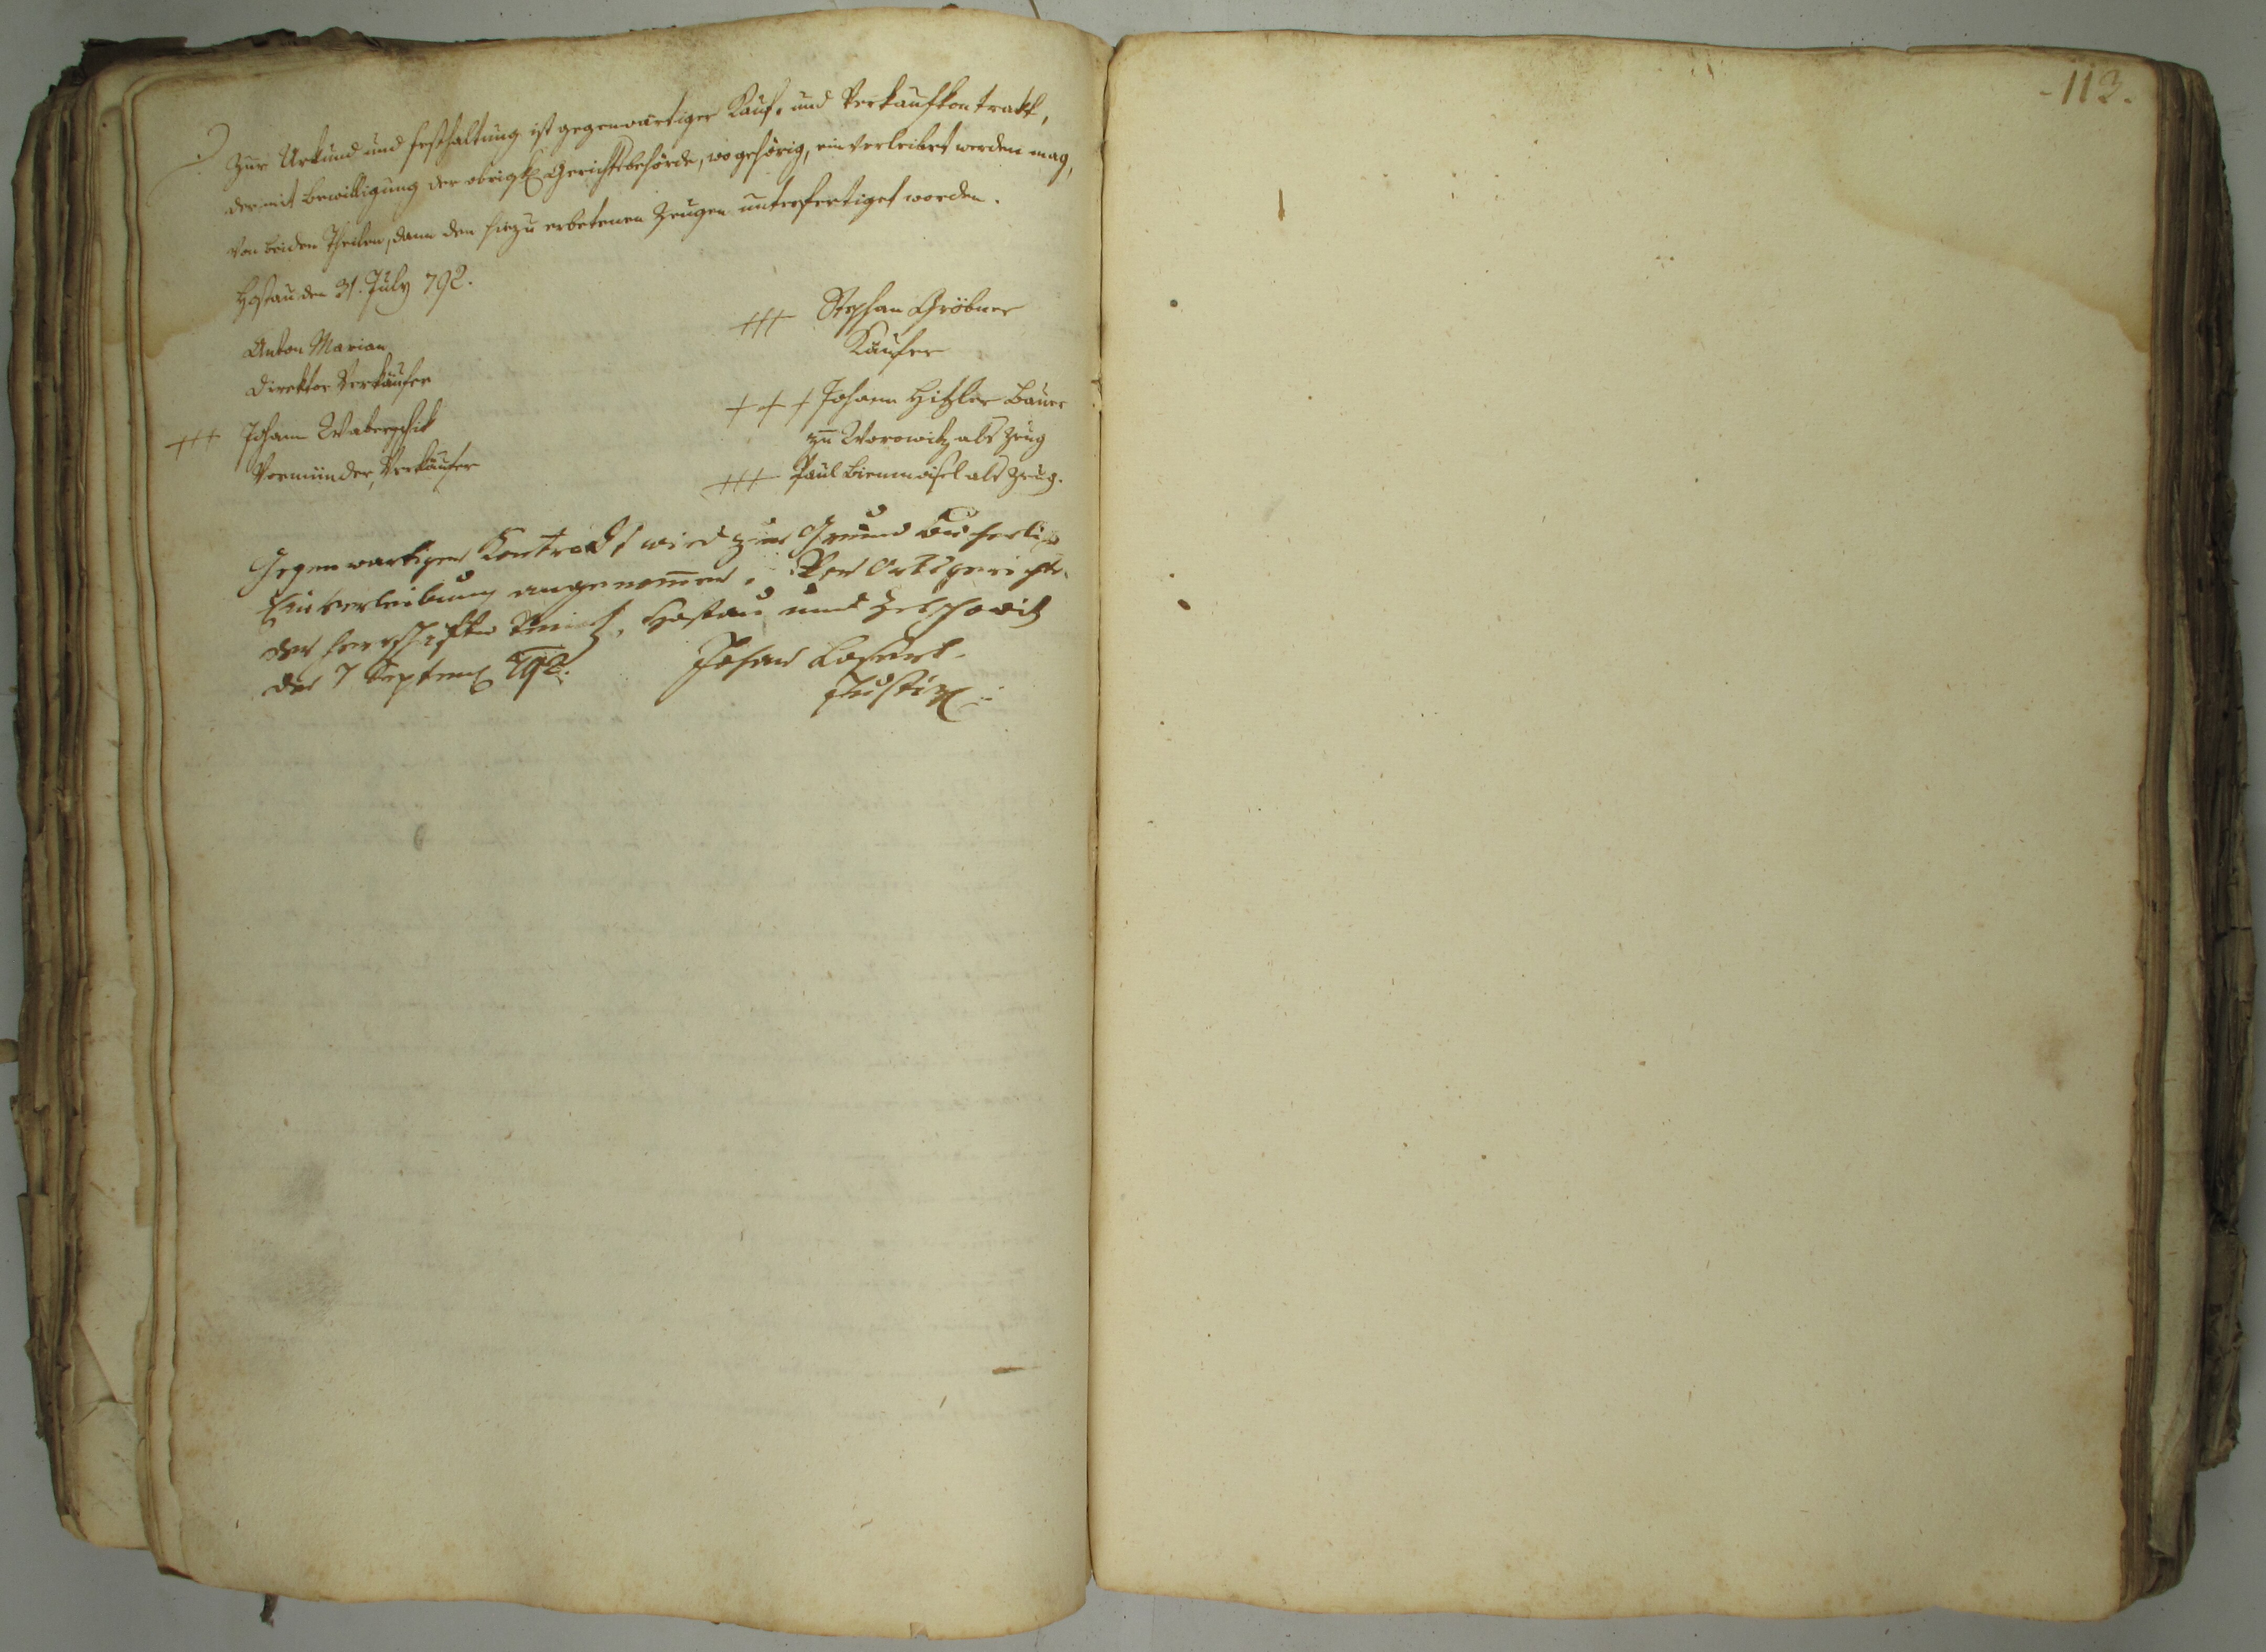 -113.
Zur Urkund und Festhaltung ist gegenwärtiger Kauf- und Verkaufkontrakt,
der mit Bewilligung der obrigk Gerichtsbehörde, wo gehörig, einverleibet werden mag,
von beiden Theilen, dann den hiezu erbetenen Zeugen unterfertiget worden.
Hostau den 31. July 792.
Anton Marian
Direktor Verkäufer
+++ Johann
Vormünder, Verkäufer
+++ Stephan Gröbner
Käufer
+++ Johann Hitzler Bauer
zu Worowitz als Zeug
+++ Paul als Zeug.
Gegenwartiger Kontrackt wird zur Grund bucherlich
Einverleibung angenomen. Von Ortsgericht
der Herrschaften Hostau und
den 7 Septem 792. Johan
Justiz